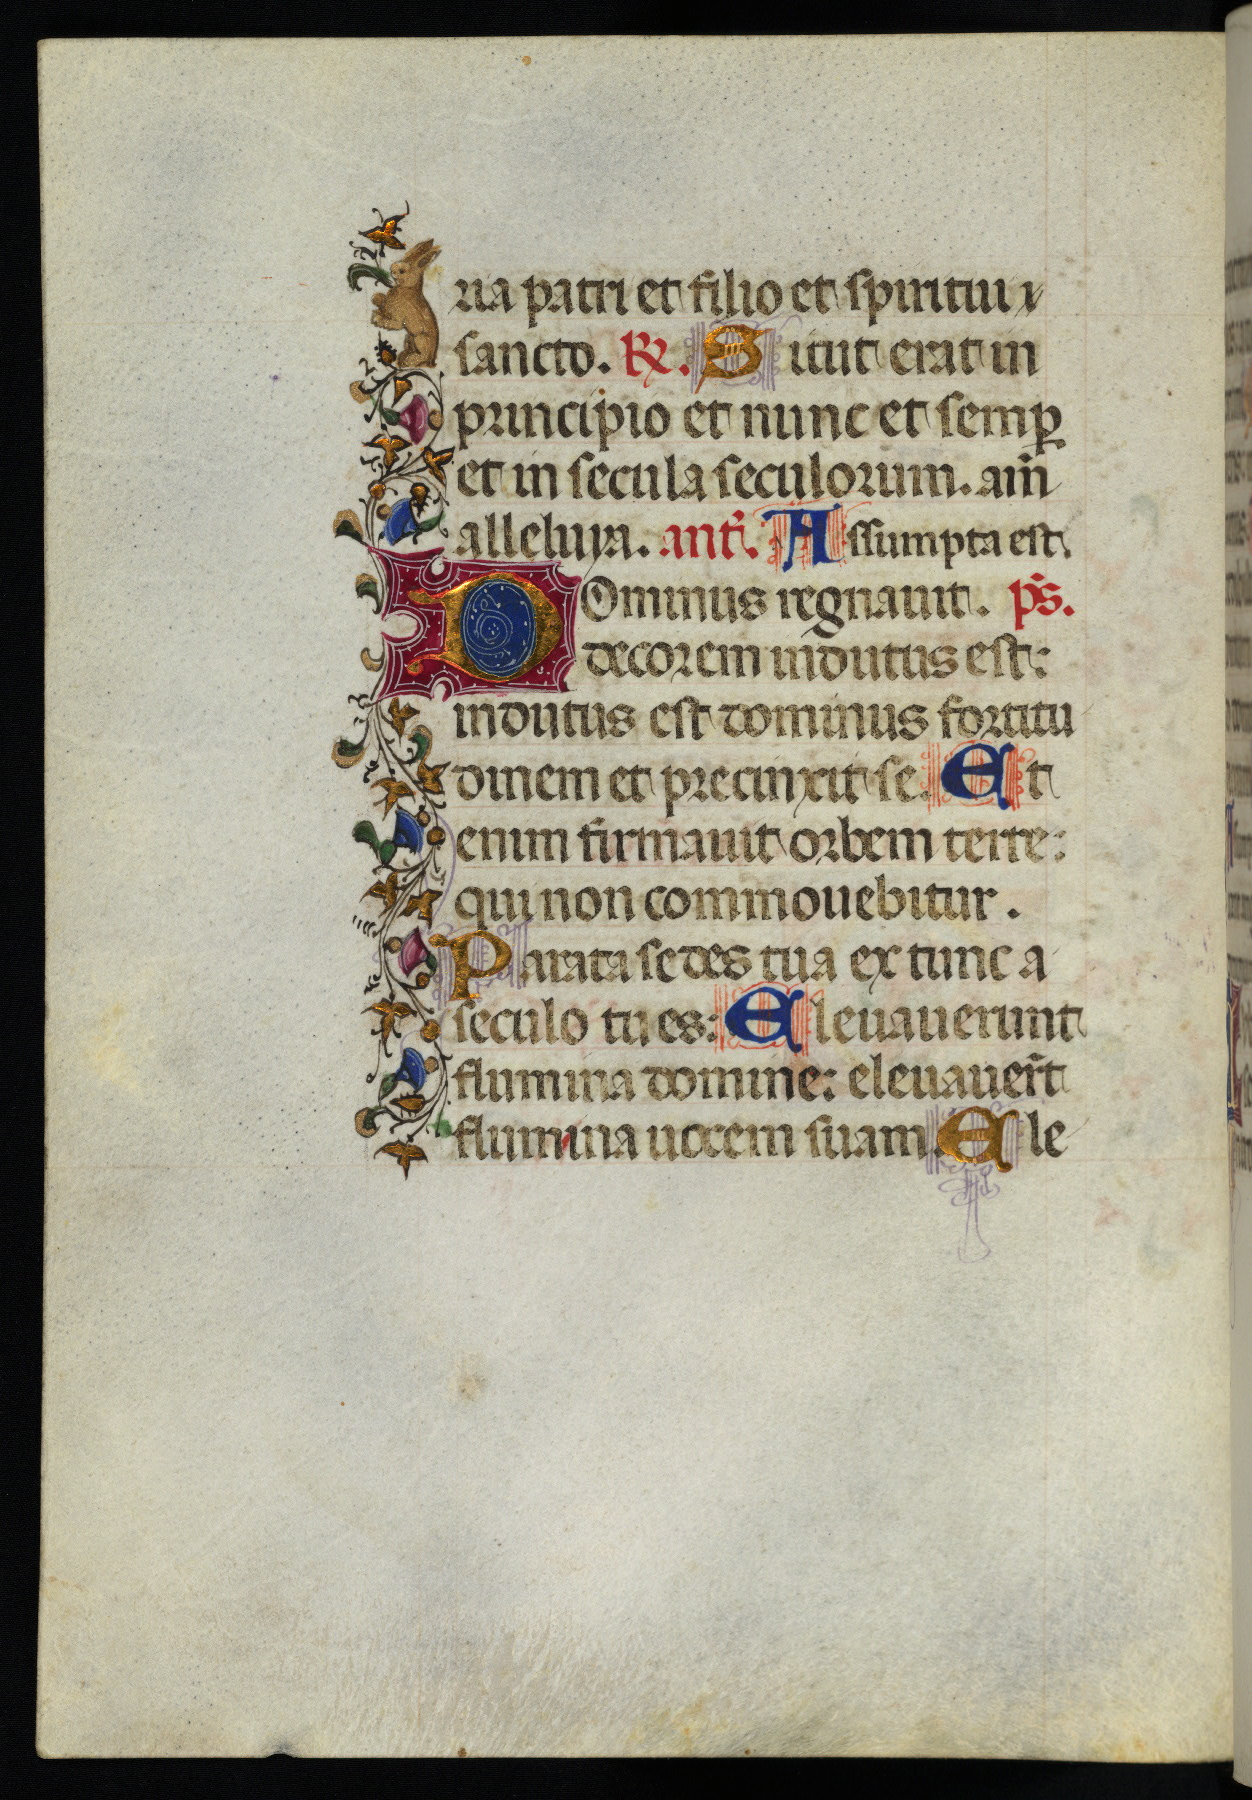 ria patri et filio et spiritui
sancto. R. Sicut erat in
principio et nunc et semp
et in secula seculorum. am̄
alleluya. ant. Assumpta est.
Dominus regnauit. p̄s.
decorem indutus est:
indutus est dominus fortitu
dinem et precinxit se. Et
enim firmauit orbem terre:
qui non commouebitur.
Parata sedes tua ex tunc a
seculo tu es: Eleuauerunt
flumina domine: eleuauer̄t
flumina uocem suam. Ele